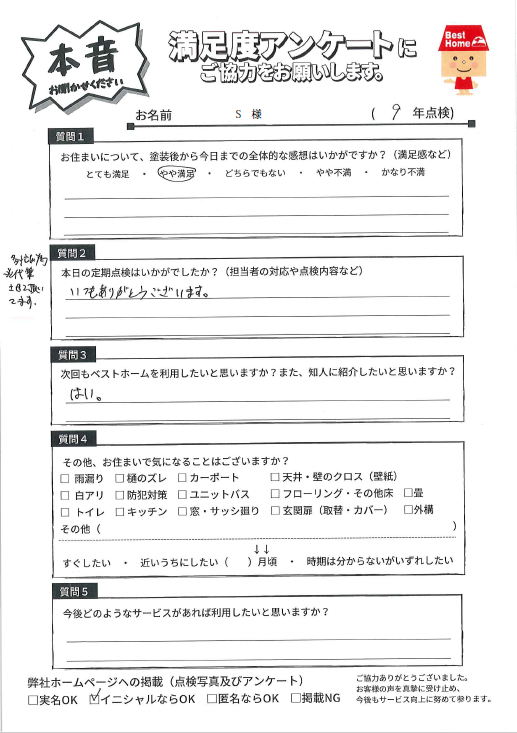 本音
お聞かせください
満足度アンケートに
ご協力をお願いします。
Best
Home
お名前 S 様 ( 9 年点検)
質問1
お住まいについて、塗装後から今日までの全体的な感想はいかがですか？（満足感など）
とても満足 ・ やや満足 ・ どちらでもない ・ やや不満 ・ かなり不満
質問2
本日の定期点検はいかがでしたか？（担当者の対応や点検内容など）
いつもありがとうございます。
代筆
です。
質問3
次回もベストホームを利用したいと思いますか？また、知人に紹介したいと思いますか？
はい。
質問4
その他、お住まいで気になることはございますか？
□ 雨漏り □ 樋のズレ □ カーポート □ 天井・壁のクロス（壁紙）
□ 白アリ □ 防犯対策 □ ユニットバス □ フローリング・その他床 □畳
□ トイレ □ キッチン □ 窓・サッシ廻り □ 玄関扉（取替・カバー） □外構
その他（ ）
↓↓
すぐしたい ・ 近いうちにしたい（ ）月頃 ・ 時期は分からないがいずれしたい
質問5
今後どのようなサービスがあれば利用したいと思いますか？
弊社ホームページへの掲載（点検写真及びアンケート）
□実名OK ☑イニシャルならOK □匿名ならOK □掲載NG
ご協力ありがとうございました。
お客様の声を真摯に受け止め、
今後もサービス向上に努めて参ります。